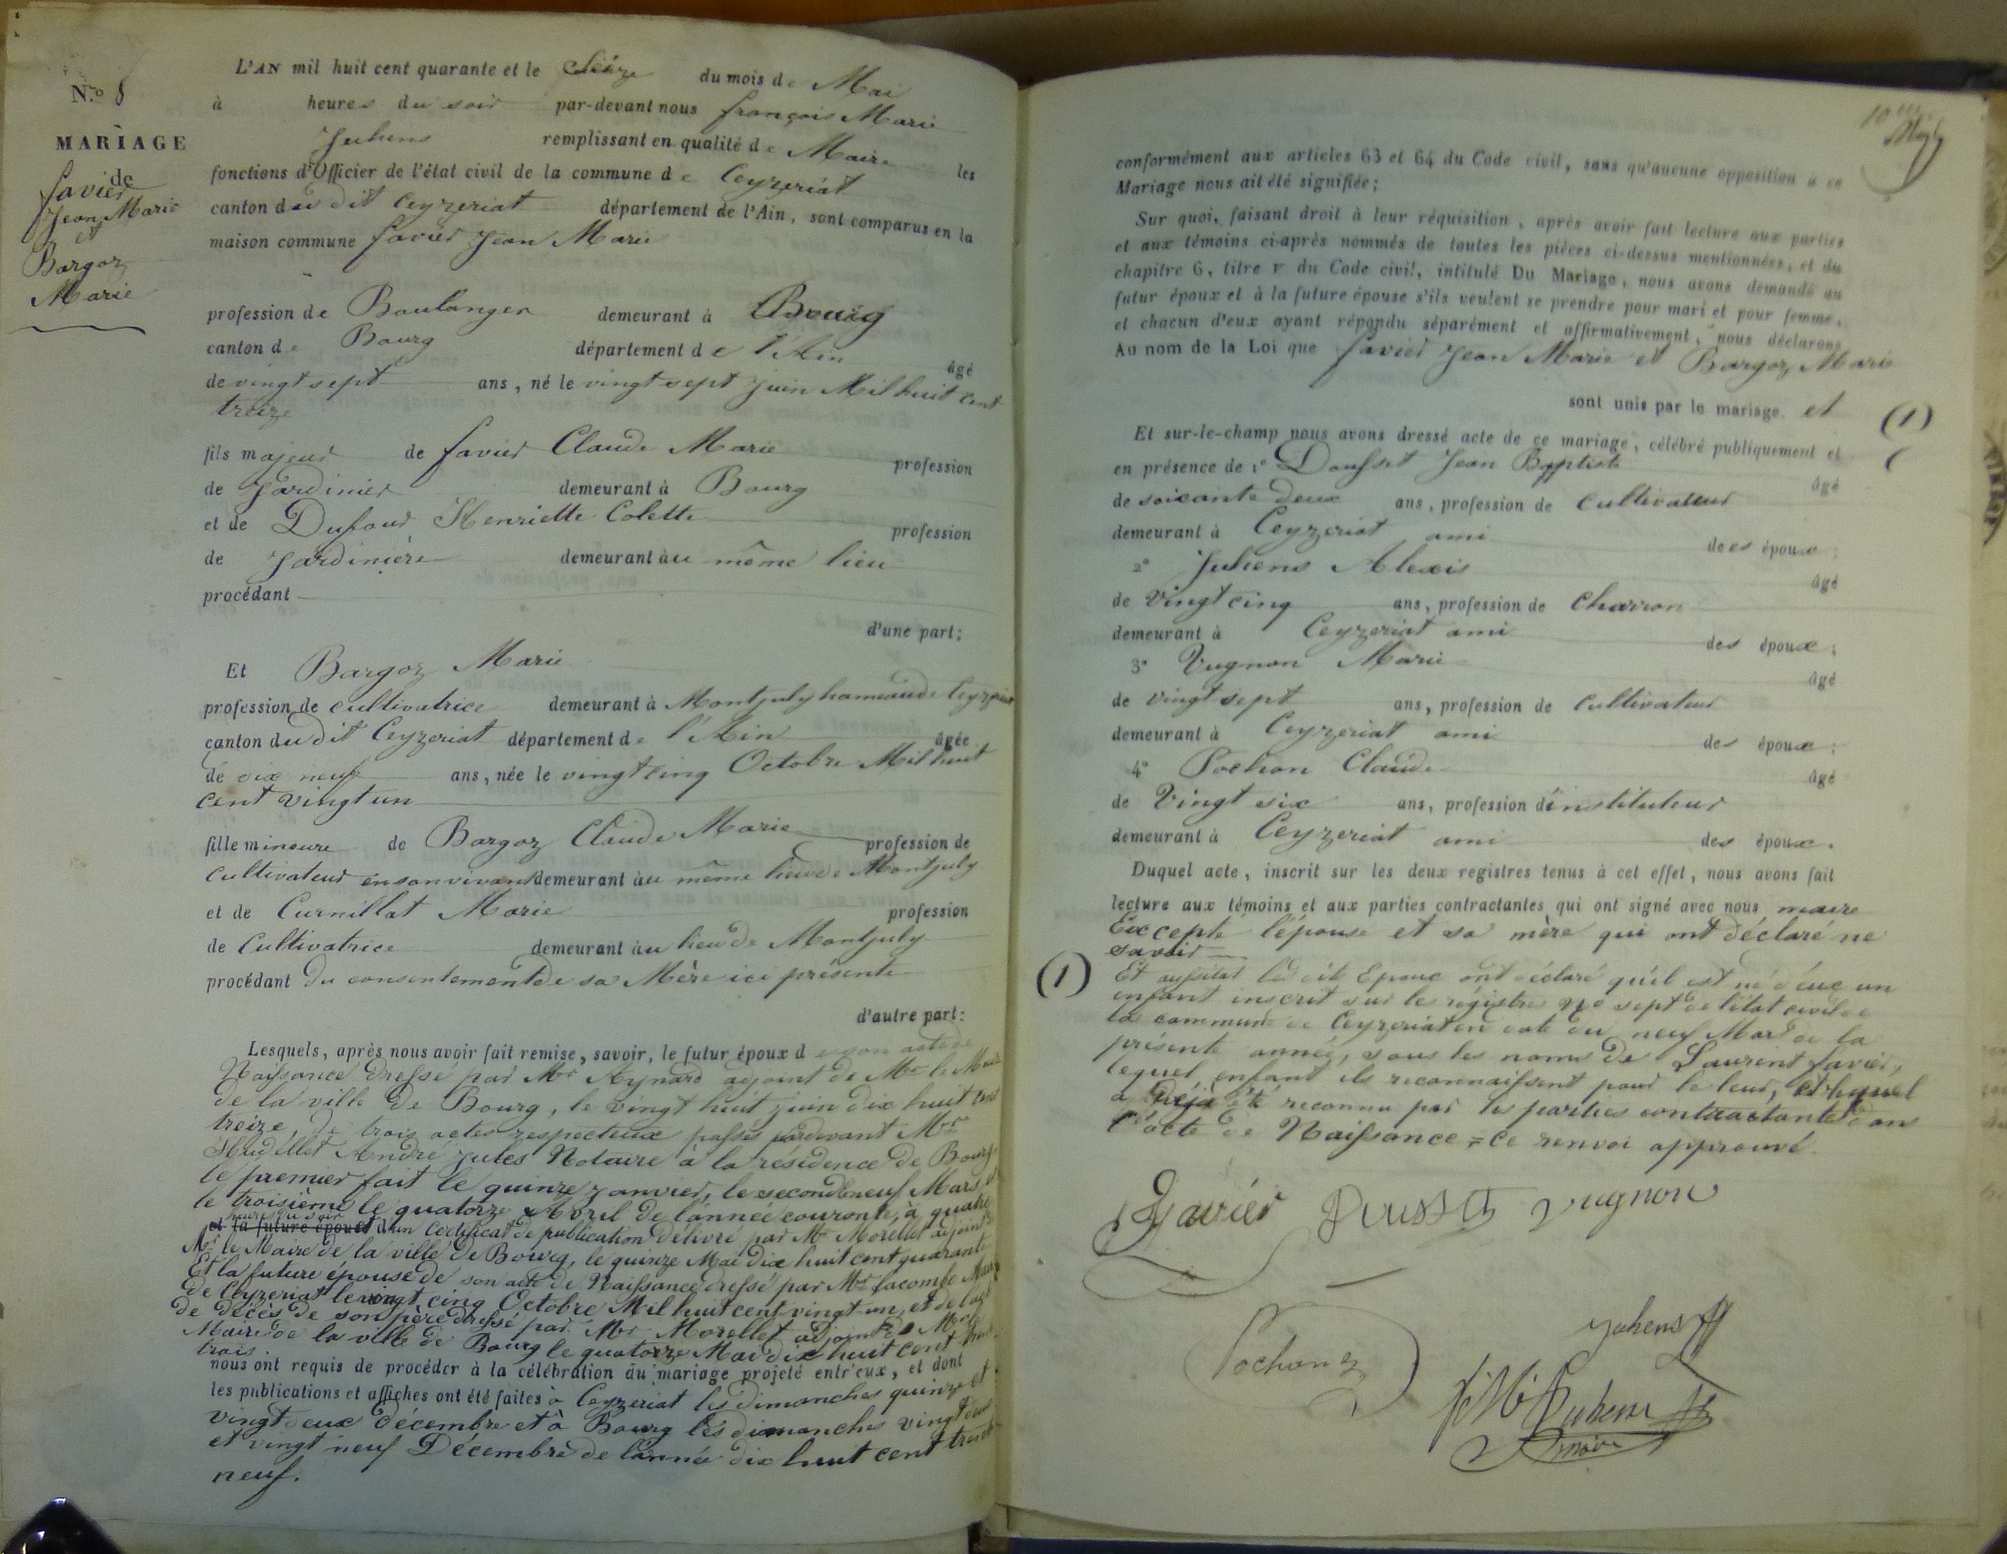 N.º 8
MARIAGE
de
favier
Jean Marie
et
Bargoz
Marie
L'AN mil huit cent quarante et le seize du mois de Mai
à heures du soir par-devant nous françois Marie
Juhens remplissant en qualité de Maire les
fonctions d'Officier de l'état civil de la commune de Ceyzeriat
canton du dit Ceyzeriat département de l'Ain, sont comparus en la
maison commune favier Jean Marie
profession de Boulanger demeurant à Bourg
canton de Bourg département de l'Ain âgé
de vingt sept ans, né le vingt sept juin Mil huit cent
treize
fils majeur de favier Claude Marie profession
de Jardinier demeurant à Bourg
et de Dufour Henriette Colette profession
de Jardinière demeurant au même lieu
procédant
d'une part;
Et Bargoz Marie
profession de cultivatrice demeurant à Montjuly hameau de Ceyzeriat
canton du dit Ceyzeriat département de l'Ain âgée
de dix neuf ans, née le vingt cinq Octobre Mil huit
cent vingt un
fille mineure de Bargoz Claude Marie profession de
cultivateur en son vivant demeurant au même lieu de Montjuly
et de Curnillat Marie profession
de Cultivatrice demeurant au lieu de Montjuly
procédant du consentement de sa Mère ici présente
d'autre part:
Lesquels, après nous avoir fait remise, savoir, le futur époux de son acte de
Naissance dressé par Mr Aynard adjoint de Mr le Maire
de la ville de Bourg, le vingt huit juin dix huit cent
treize, de trois actes respectueux passés pardevant Mr
André Jules Notaire à la résidence de Bourg
le premier fait le quinze janvier, le second neuf Mars, et
le troisième le quatorze Avril de l'année courante, à quatre
heures du soir
et la future épouse d'un certificat de publication délivré par Mr Morellet adjoint de
Mr le Maire de la ville de Bourg, le quinze Mai dix huit cent quarante
Et la future épouse de son acte de Naissance dressé par Mr Lacombe Maire
de Ceyzeriat le vingt cinq Octobre Mil huit cent vingt-un, et de l'acte
de décès de son père dressé par Mr Morellet adjoint de Mr le
Maire de la ville de Bourg le quatorze Mai dix huit cent trente
trois.
nous ont requis de procéder à la célébration du mariage projeté entr'eux, et dont
les publications et affiches ont été faites à Ceyzeriat les dimanches quinze et
vingt deux Décembre et à Bourg les dimanches vingt deux
et vingt neuf Décembre de l'année dix huit cent trente
neuf.
conformément aux articles 63 et 64 du Code civil, sans qu'aucune opposition à ce
Mariage nous ait été signifiée;
Sur quoi, faisant droit à leur réquisition, après avoir fait lecture aux parties
et aux témoins ci-après nommés de toutes les pièces ci-dessus mentionnées, et du
chapitre 6, titre V du Code civil, intitulé Du Mariage, nous avons demandé au
futur époux et à la future épouse s'ils veulent se prendre pour mari et pour femme,
et chacun d'eux ayant répondu séparément et affirmativement, nous déclarons
Au nom de la Loi que favier Jean Marie et Bargoz Marie
sont unis par le mariage. et (1)
Et sur-le-champ nous avons dressé acte de ce mariage, célébré publiquement et
en présence de 1º Dousset Jean Baptiste âgé
de soixante deux ans, profession de Cultivateur
demeurant à Ceyzeriat ami des époux;
2º Juhens Alexis âgé
de vingt cinq ans, profession de Charron
demeurant à Ceyzeriat ami des époux;
3º Vugnon Marie âgé
de vingt sept ans, profession de Cultivateur
demeurant à Ceyzeriat ami des époux;
4º Pochon Claude âgé
de Vingt six ans, profession d'instituteur
demeurant à Ceyzeriat ami des époux.
Duquel acte, inscrit sur les deux registres tenus à cet effet, nous avons fait
lecture aux témoins et aux parties contractantes qui ont signé avec nous maire
Excepté l'épouse et sa mère qui ont déclaré ne
savoir
(1) Et aussitôt les dits Epoux ont déclaré qu'il est né d'eux un
enfant inscrit sur les régistres No sept de l'état civil de
la commune de Ceyzeriat en date du neuf Mars de la
présente année, sous les noms de Laurent favier,
lequel enfant ils reconnaissent pour le leur, et lequel
a déjà été reconnu par les parties contractantes dans
l'acte de Naissance = Ce renvoi approuvé.
Favier Dousset Vugnon
Pochon Juhens
f. M. Juhens
maire